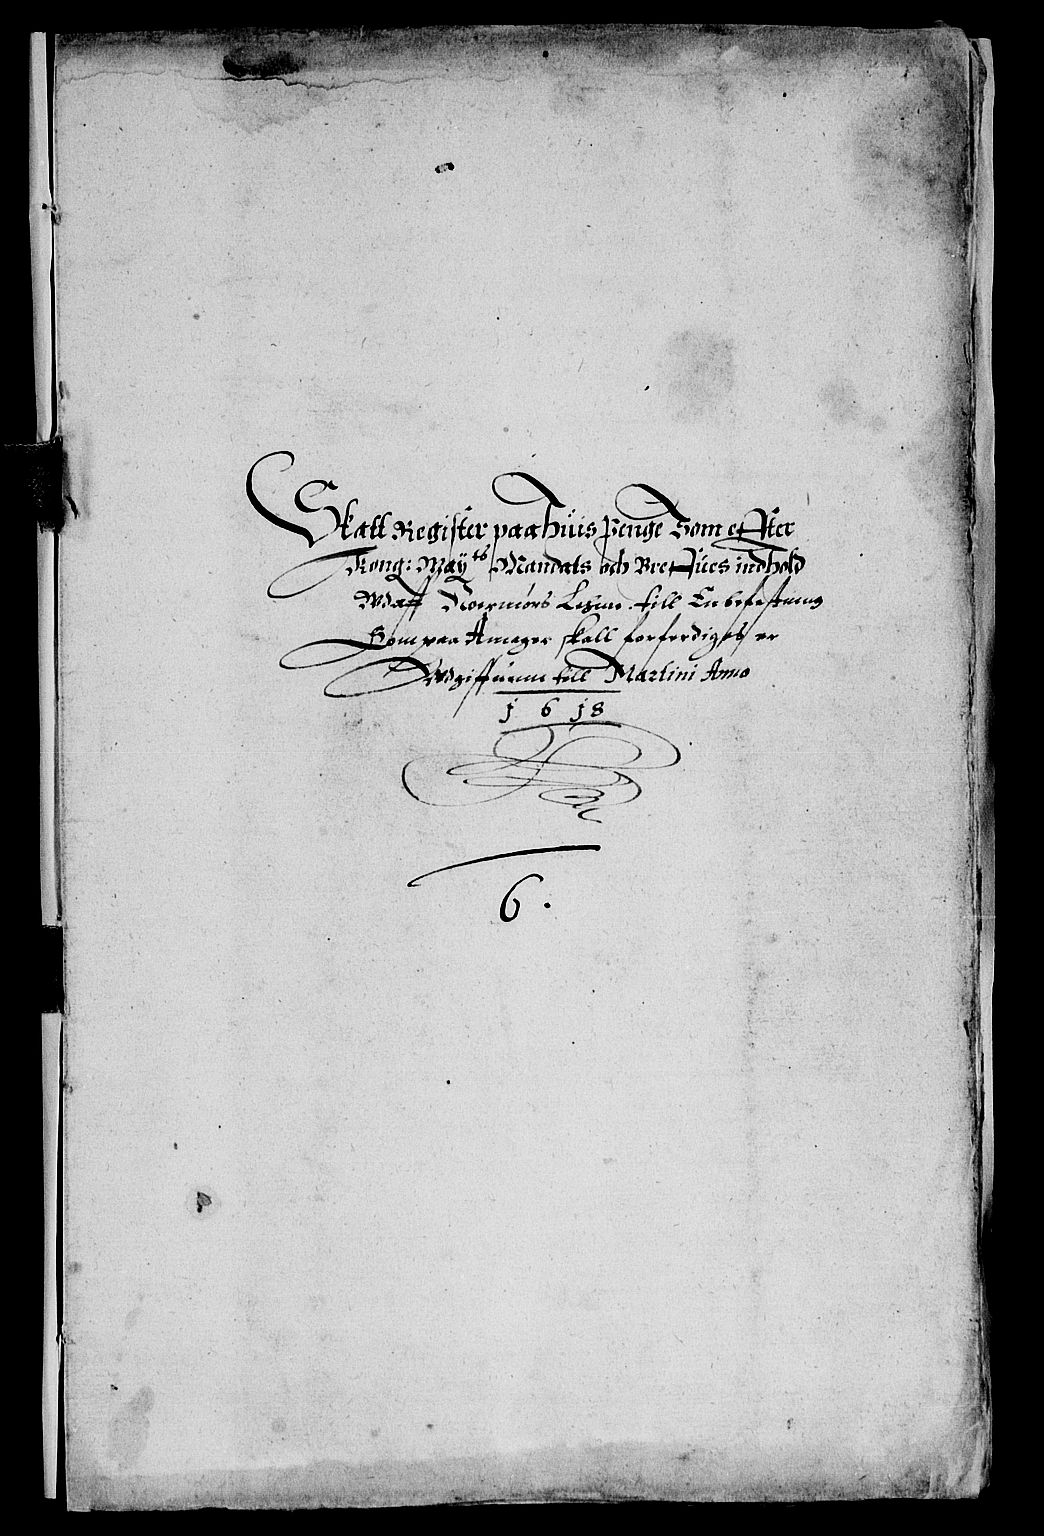 Skatt Register paa huis penge Som effter
Kong: Maÿ^ts Mandats och Breffues indhold
Waff Noermørs Lehnn till En befestning
Som paa Amager skall forferdiges er
Wdgiffuenn till Martini Anno
1618
6.